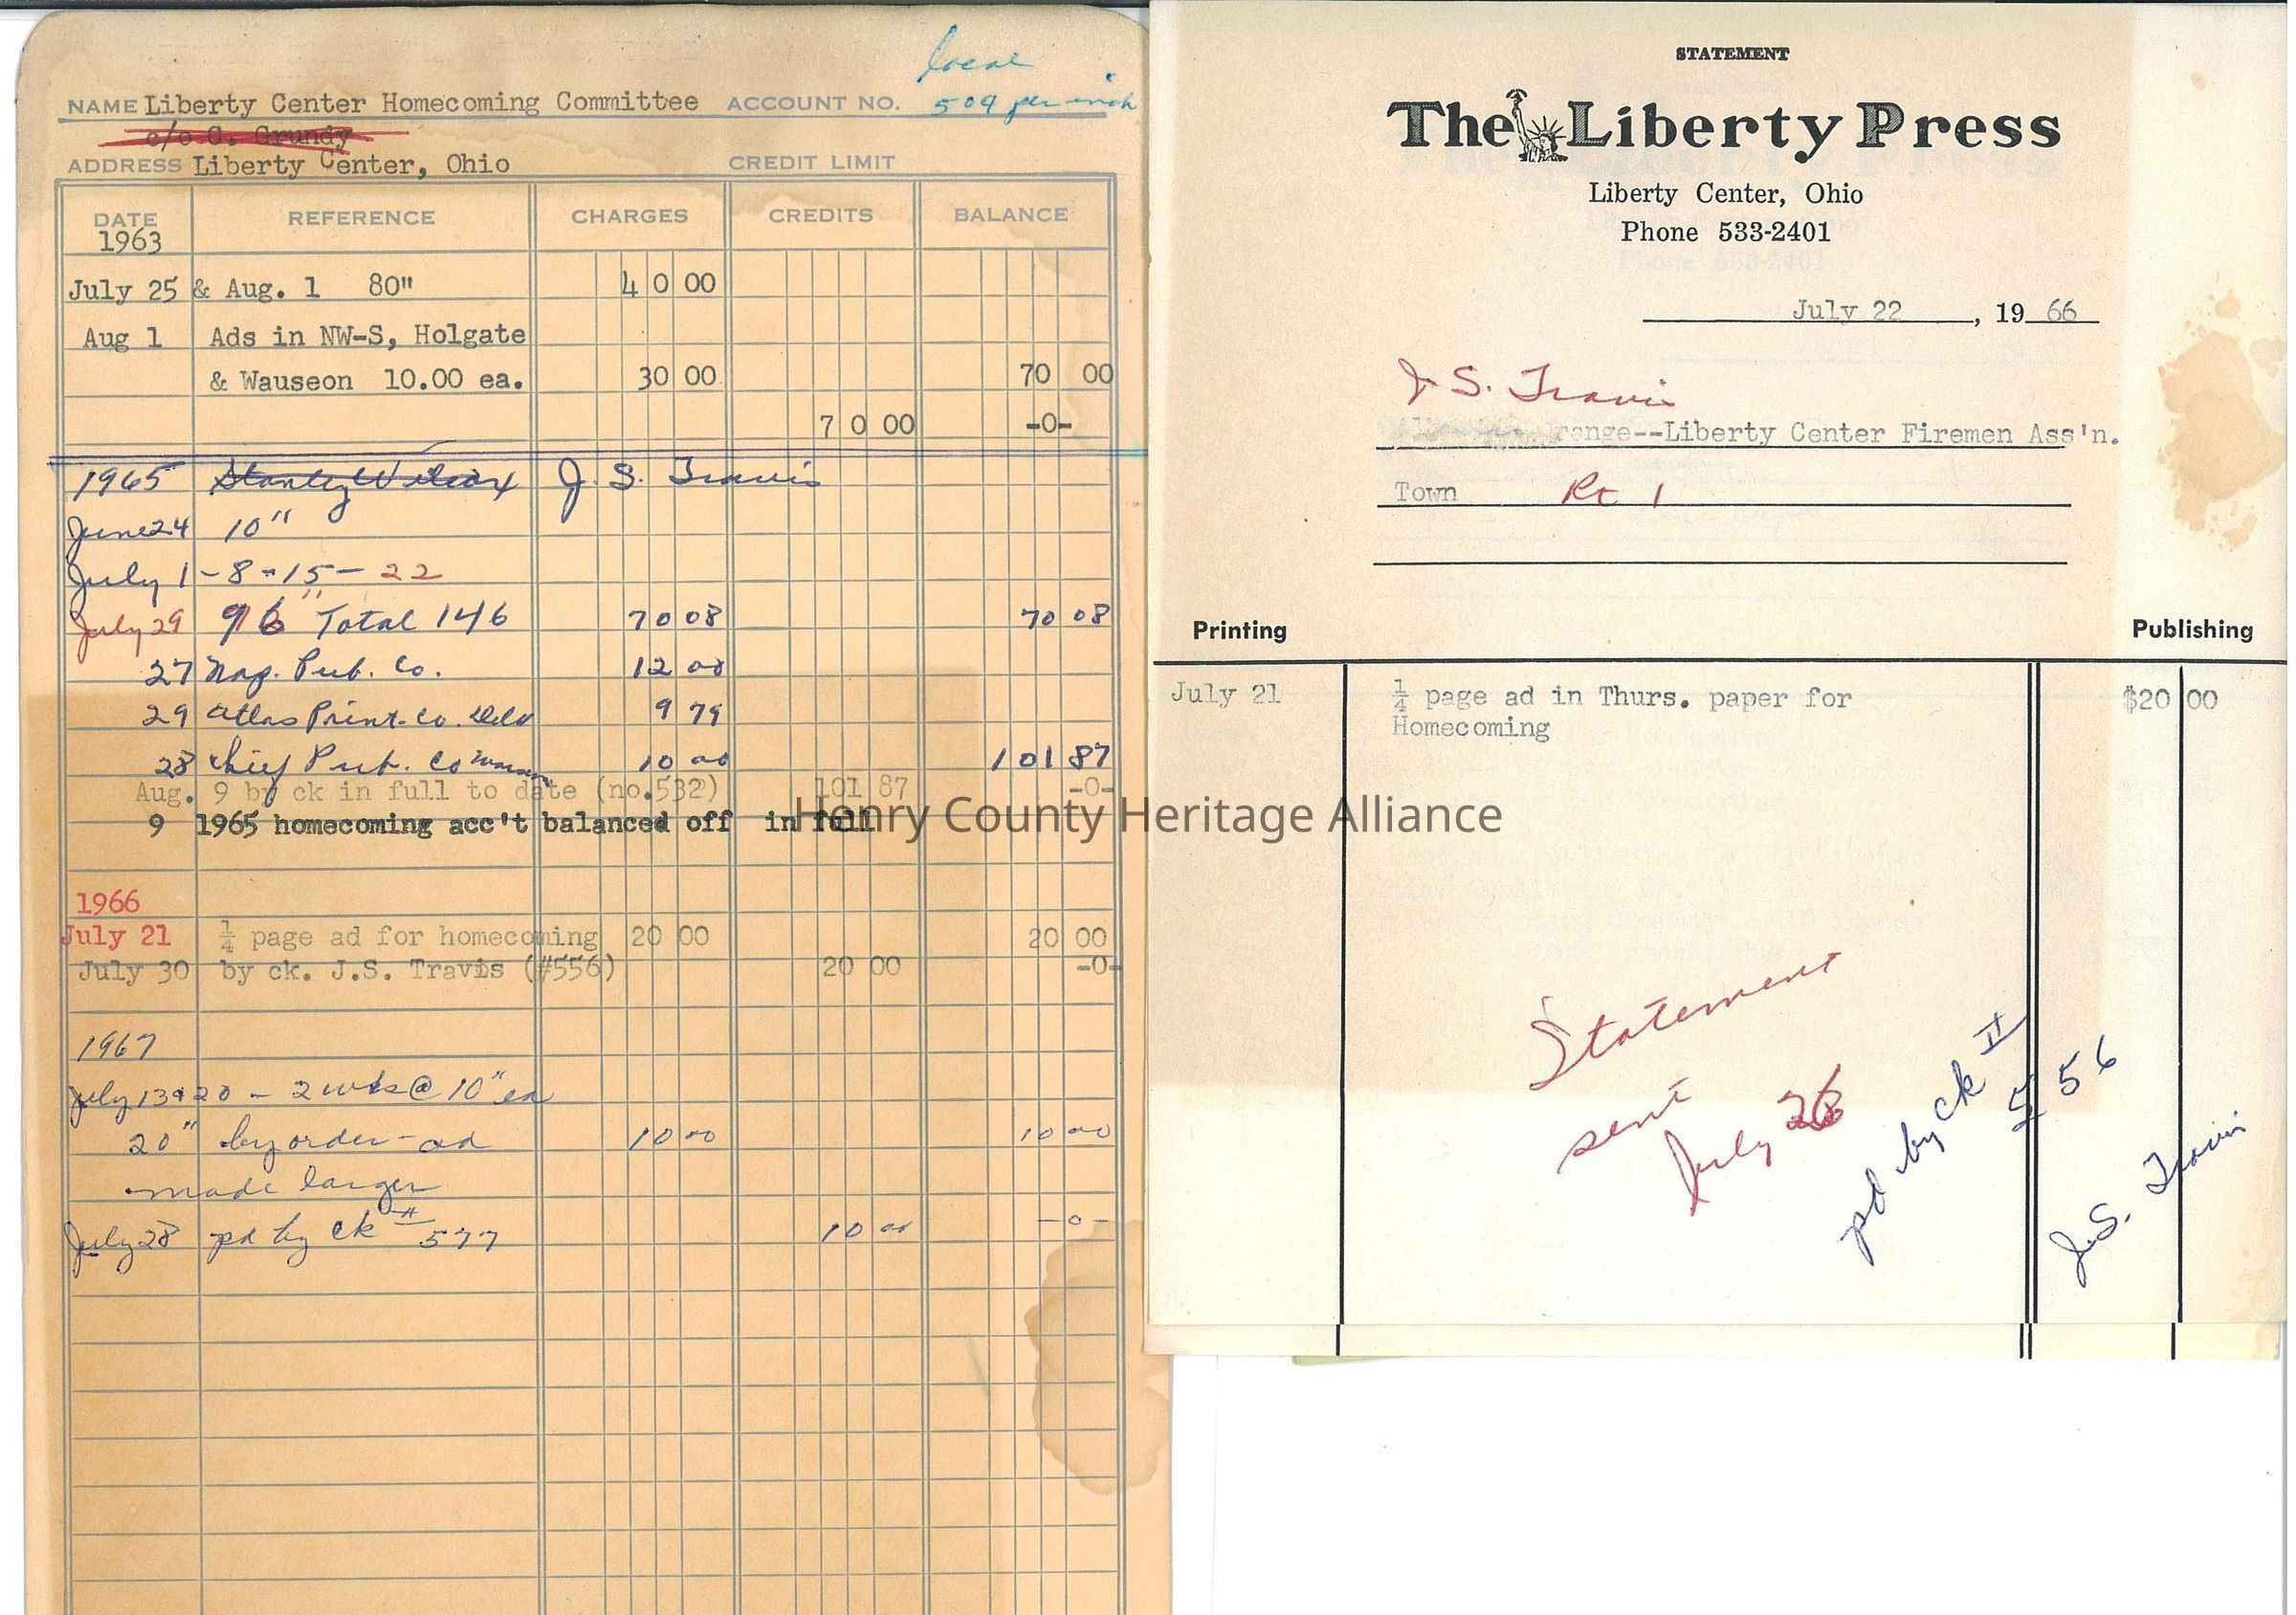 local
NAME Liberty Center Homecoming Committee ACCOUNT NO. 50¢ per inch
c/o C. Grundy
ADDRESS Liberty Center, Ohio CREDIT LIMIT
DATE REFERENCE CHARGES CREDITS BALANCE
1963
July 25 & Aug. 1 80" 40 00
Aug 1 Ads in NW-S, Holgate
& Wauseon 10.00 ea. 30 00 70 00
70 00 -0-
1965 Stanley Wilcox J. S. Travis
June 24 10"
July 1 - 8 - 15 - 22
July 29 96" Total 146 70 08 70 08
27 Nap. Pub. Co. 12 00
29 Atlas Print. Co. Del 9 79
28 Chief Pub. Co 10 00 101 87
Aug. 9 by ck in full to date (no.532) 101 87 -0-
9 1965 homecoming acc't balanced off in full
1966
July 21 ¼ page ad for homecoming 20 00 20 00
July 30 by ck. J.S. Travis (#556) 20 00 -0-
1967
July 13 & 20 - 2 wks @ 10" ea
20" by order - ad 10 00 10 00
made larger
July 28 pd by ck # 577 10 00 -0-
STATEMENT
The Liberty Press
Liberty Center, Ohio
Phone 533-2401
July 22, 19 66
J. S. Travis
range--Liberty Center Firemen Ass'n.
Town Rt 1
Printing Publishing
July 21 ¼ page ad in Thurs. paper for $20 00
Homecoming
Statement
sent
July 26
pd by ck # 556
J.S. Travis
Henry County Heritage Alliance